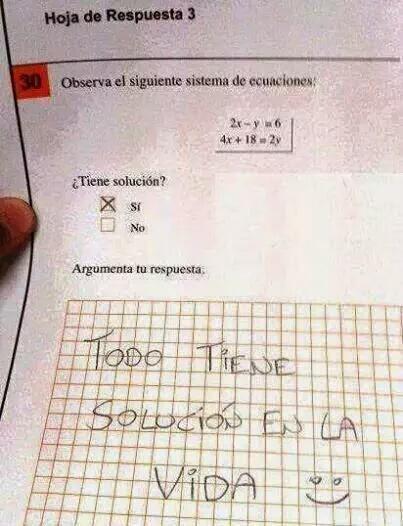 Hoja de Respuesta 3
30 Observa el siguiente sistema de ecuaciones:
2x - y = 6
4x + 18 = 2y
¿Tiene solución?
Sí
No
Argumenta tu respuesta.
TODO TIENE
SOLUCIÓN EN LA
VIDA